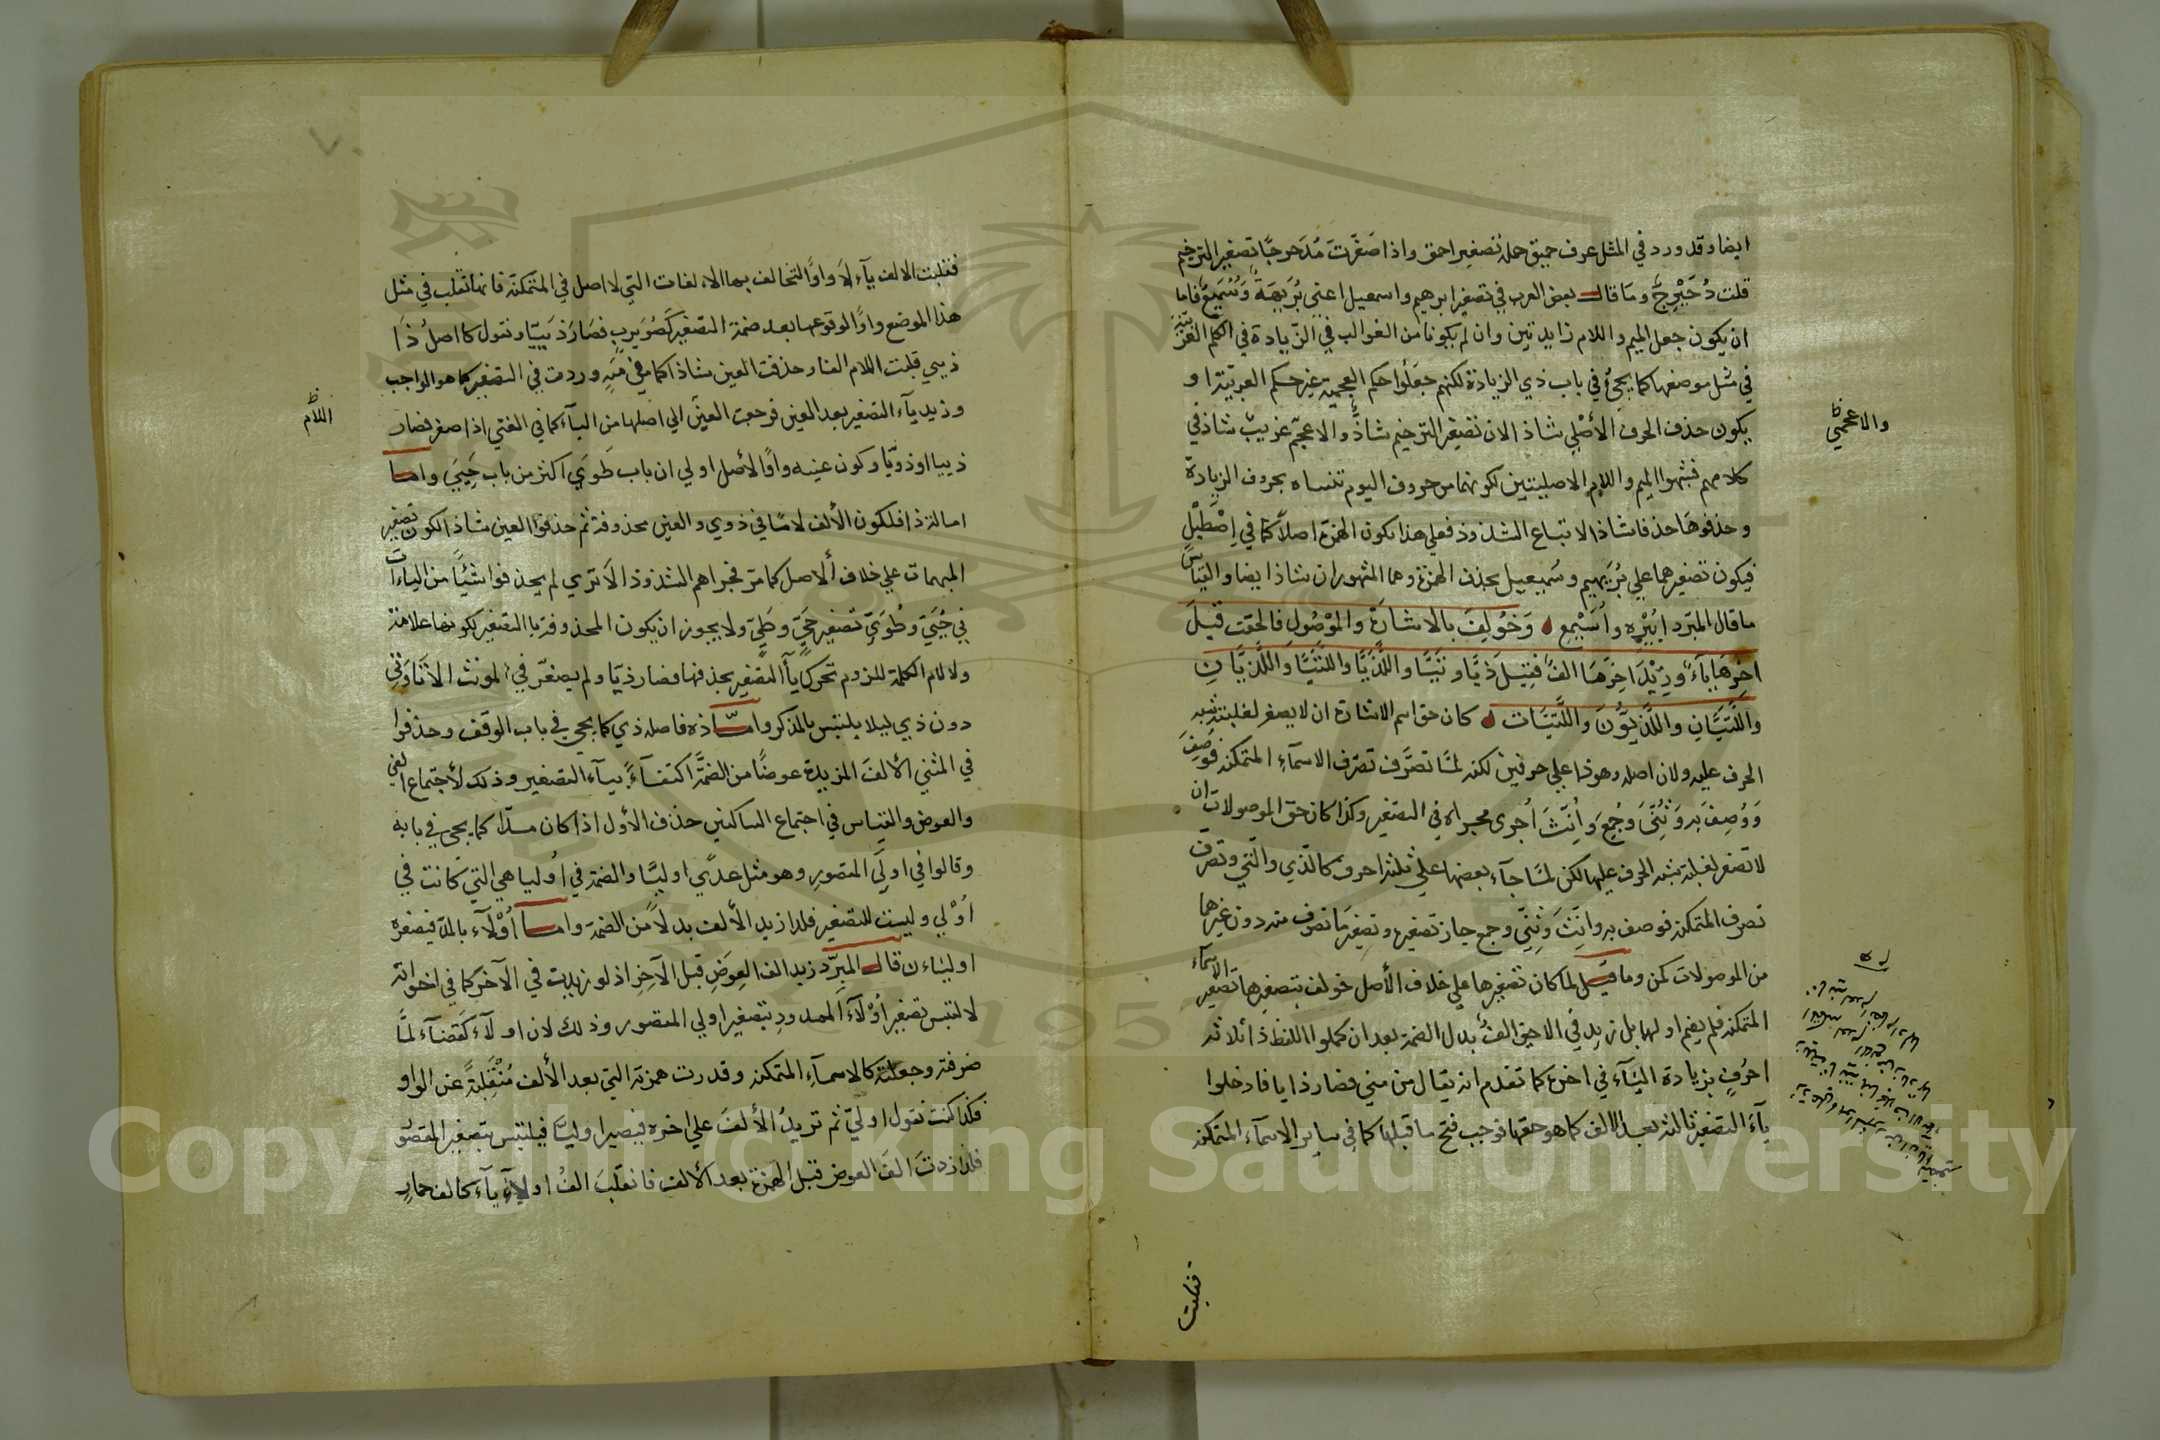 ايضا وقد ورد في المثل عرف حميق جمله تصغير احمق واذا صَغّرتَ مُدَحرجًا تصغير الترخيم
قلت دُحَيْرِجٌ وما قال بعض العرب في تصغير ابرهيم واسمعيل اعني بُرَيهةً وسُمَيعًا فاما
ان يكون جعل الميم واللام زايدتين وان لم يكونا من الغوالب في الزيادة في الكلم العربية
في مثل موضعها كما يجئ في باب ذي الزيادة لكنهم جعلوا حكم العجمية غير حكم العربية او
يكون حذف الحرف الأصْلي شاذ الان تصغير الترخيم شاذٌّ والاعجمّ غريبٌ شاذ في
كلامهم فشبهوا الميم واللام الاصليتين لكونهما من حروف اليوم تنساه بحروف الزيادة
وحذفوهَا حذفا شاذا لاتباع الشذوذ فعلي هذا تكون الهمزة اصلًا كما في إصْطَبْلٍ
فيكون تصغيرهما علي بُرَيهيم وسُمَيعيل بحذف الهمزة وهما المشهوران شاذا ايضا والقياسُ
ما قال المبرّد ابُيْرِه واُسَيْمِع وَخُولِفَ بالاشارَة والموْصُولِ فالحقت قبلَ
اخِرِهَا ياءٌ وزِيْدَ اخِرَهَا الفٌ فقيلَ ذَيّا وتَيَّا واللَّذَيَّا واللَّتَيَّا وَاللَّذَيَّانِ
واللَّتَيَّانِ واللَّذَيّوُنَ واللَّتَيَّات كان حق اسم الاشارة ان لا يصغر لغلبة شبه
الحرف عليه ولان اصله وهو ذا علي حرفين لكنه لمّا تصرَّف تصرّف الاسمآءِ المتمكنه فوُصِفَ
وَوُصِفَ به وَثُنِّيَ وجُمِعَ وأُنِّثَ اُجرى مجراه في التصغير وكذا كان حق الموصولات ان
لا تصغر لغلبة شبه الحرف عليها لكن لمّا جآء بعضها علي ثلثة احرف كالّذي والّتي وتصرّف
تصرف المتمكنه فوصف به وانِّثَ وثِنّيَ وجمع جاز تصغيره وتصغير مَا تصرف منه دون غيرهما
من الموصولات كمن وما قيل لما كان تصغيرها علي خلاف الأصل خولف بتصغيرها تصغير الاسمآء
المتمكنه فلم يضم اولها بل زيد في الاخر الفٌ بدل الضمة بعد ان كملوا اللفظ ذا ثلاثة
احرُفٍ بزيادة اليَآء في اخره كما تقدم انه يقال من مني فصار ذا يا فادخلوا
يآءَ التصغير ثالثه بعد الالف كما هو حقها فوجب فتح ما قبلها كما في سائر الاسمآء المتمكنه
والاعجمي
فقلبت
فقلبت الالف يآء لَا واوًا لتخالف بها الالفات التي لا اصل في المتمكنة فانها تقلب في مثل
هذا الموضع واوًا لوقوعها بعد ضمة التصغير كَضُوَيرب فصَارَ ذَيَيّا ونقول كما اصلُ ذَا
ذيبي قلبت اللام الفا وحذفت العين شاذا كما في مَنْهِ وردت في التصغير كما هو الواجب
وزيد يآء التصغير بعد العين فرجعت العين الي اصلها من اليآء كما في الفتي اذا صغر فصار
ذييا او ذوَيّا وكون عينه واوًا لأصل اولي ان باب طَوَيَ اكثر من باب حَيِيَ واما
امالة ذا فلكون الألف لامًا في ذوي والعين محذوفة ثم حذفوا العين شاذا لكون تصغير
المبهمات علي خلاف ألاصل كما مرّ فجراهم الشذوذ الَا تري لم يحذفوا شَيْئًا من الياءات
في حُيَيٍّ وطُوَيٍّ تصغير حَيٍّ وطَيٍّ ولا يجوز ان يكون المحذوفة يا التصغير لكونها علامة
ولا لام الكلمة للزوم تحرك يآ التصغير بحذفها فصار ذيّا ولم يصغّر في المونث الا تَا وتي
دون ذي ليلا يلتبس بالمذكر وامّا ذه فاصله ذي كما يجي في باب الوقف وحذفوا
في المثني الألفَ المزيدة عوضًا من الضمّة اكتفآءً بيآء التصغير وذلك لأجتماع الفي
والعوض والقياس في اجتماع الساكنين حذف الأول اذا كان مدّا كما يجي في بابه
وقالوا في اولَي المقصورِ وهو مثل هدًي اوليّا والضمة في اُوليا هي التي كَانت في
اُوْلي وليست للتصغير فلذا زيد الألف بدلًا من الضمة وامآ اُوْلآء بالمدّ فيصغره
اوليّاءن قال المبرّد زيد الف العِوَضِ قبل الآخِرِ اذ لو زيدت في الآخر كما في اخواته
لالتبس تصغير اُوْلَآءِ الممدودِ بتصغير اولي المقصور وذلك لان اولآء كقَضَآء لمَّا
صَرفته وجعلته كالاسمآء المتمكنه وقدرت همزته التي بعد الألف مُنْقَلِبَةً عن الواو
فكذا كنت تقول اوليّ ثم تزيدُ الألفَ علي اخره فيصير اوليّا فيلتبس بتصغير المقصُو
فلذا زدتَ الفَ العوض قبل الهمزة بعد الألف فانقلبَ الفُ اولآءِ يآء كالف حمارٍ
اللام
Copyright (C) King Saud University
195